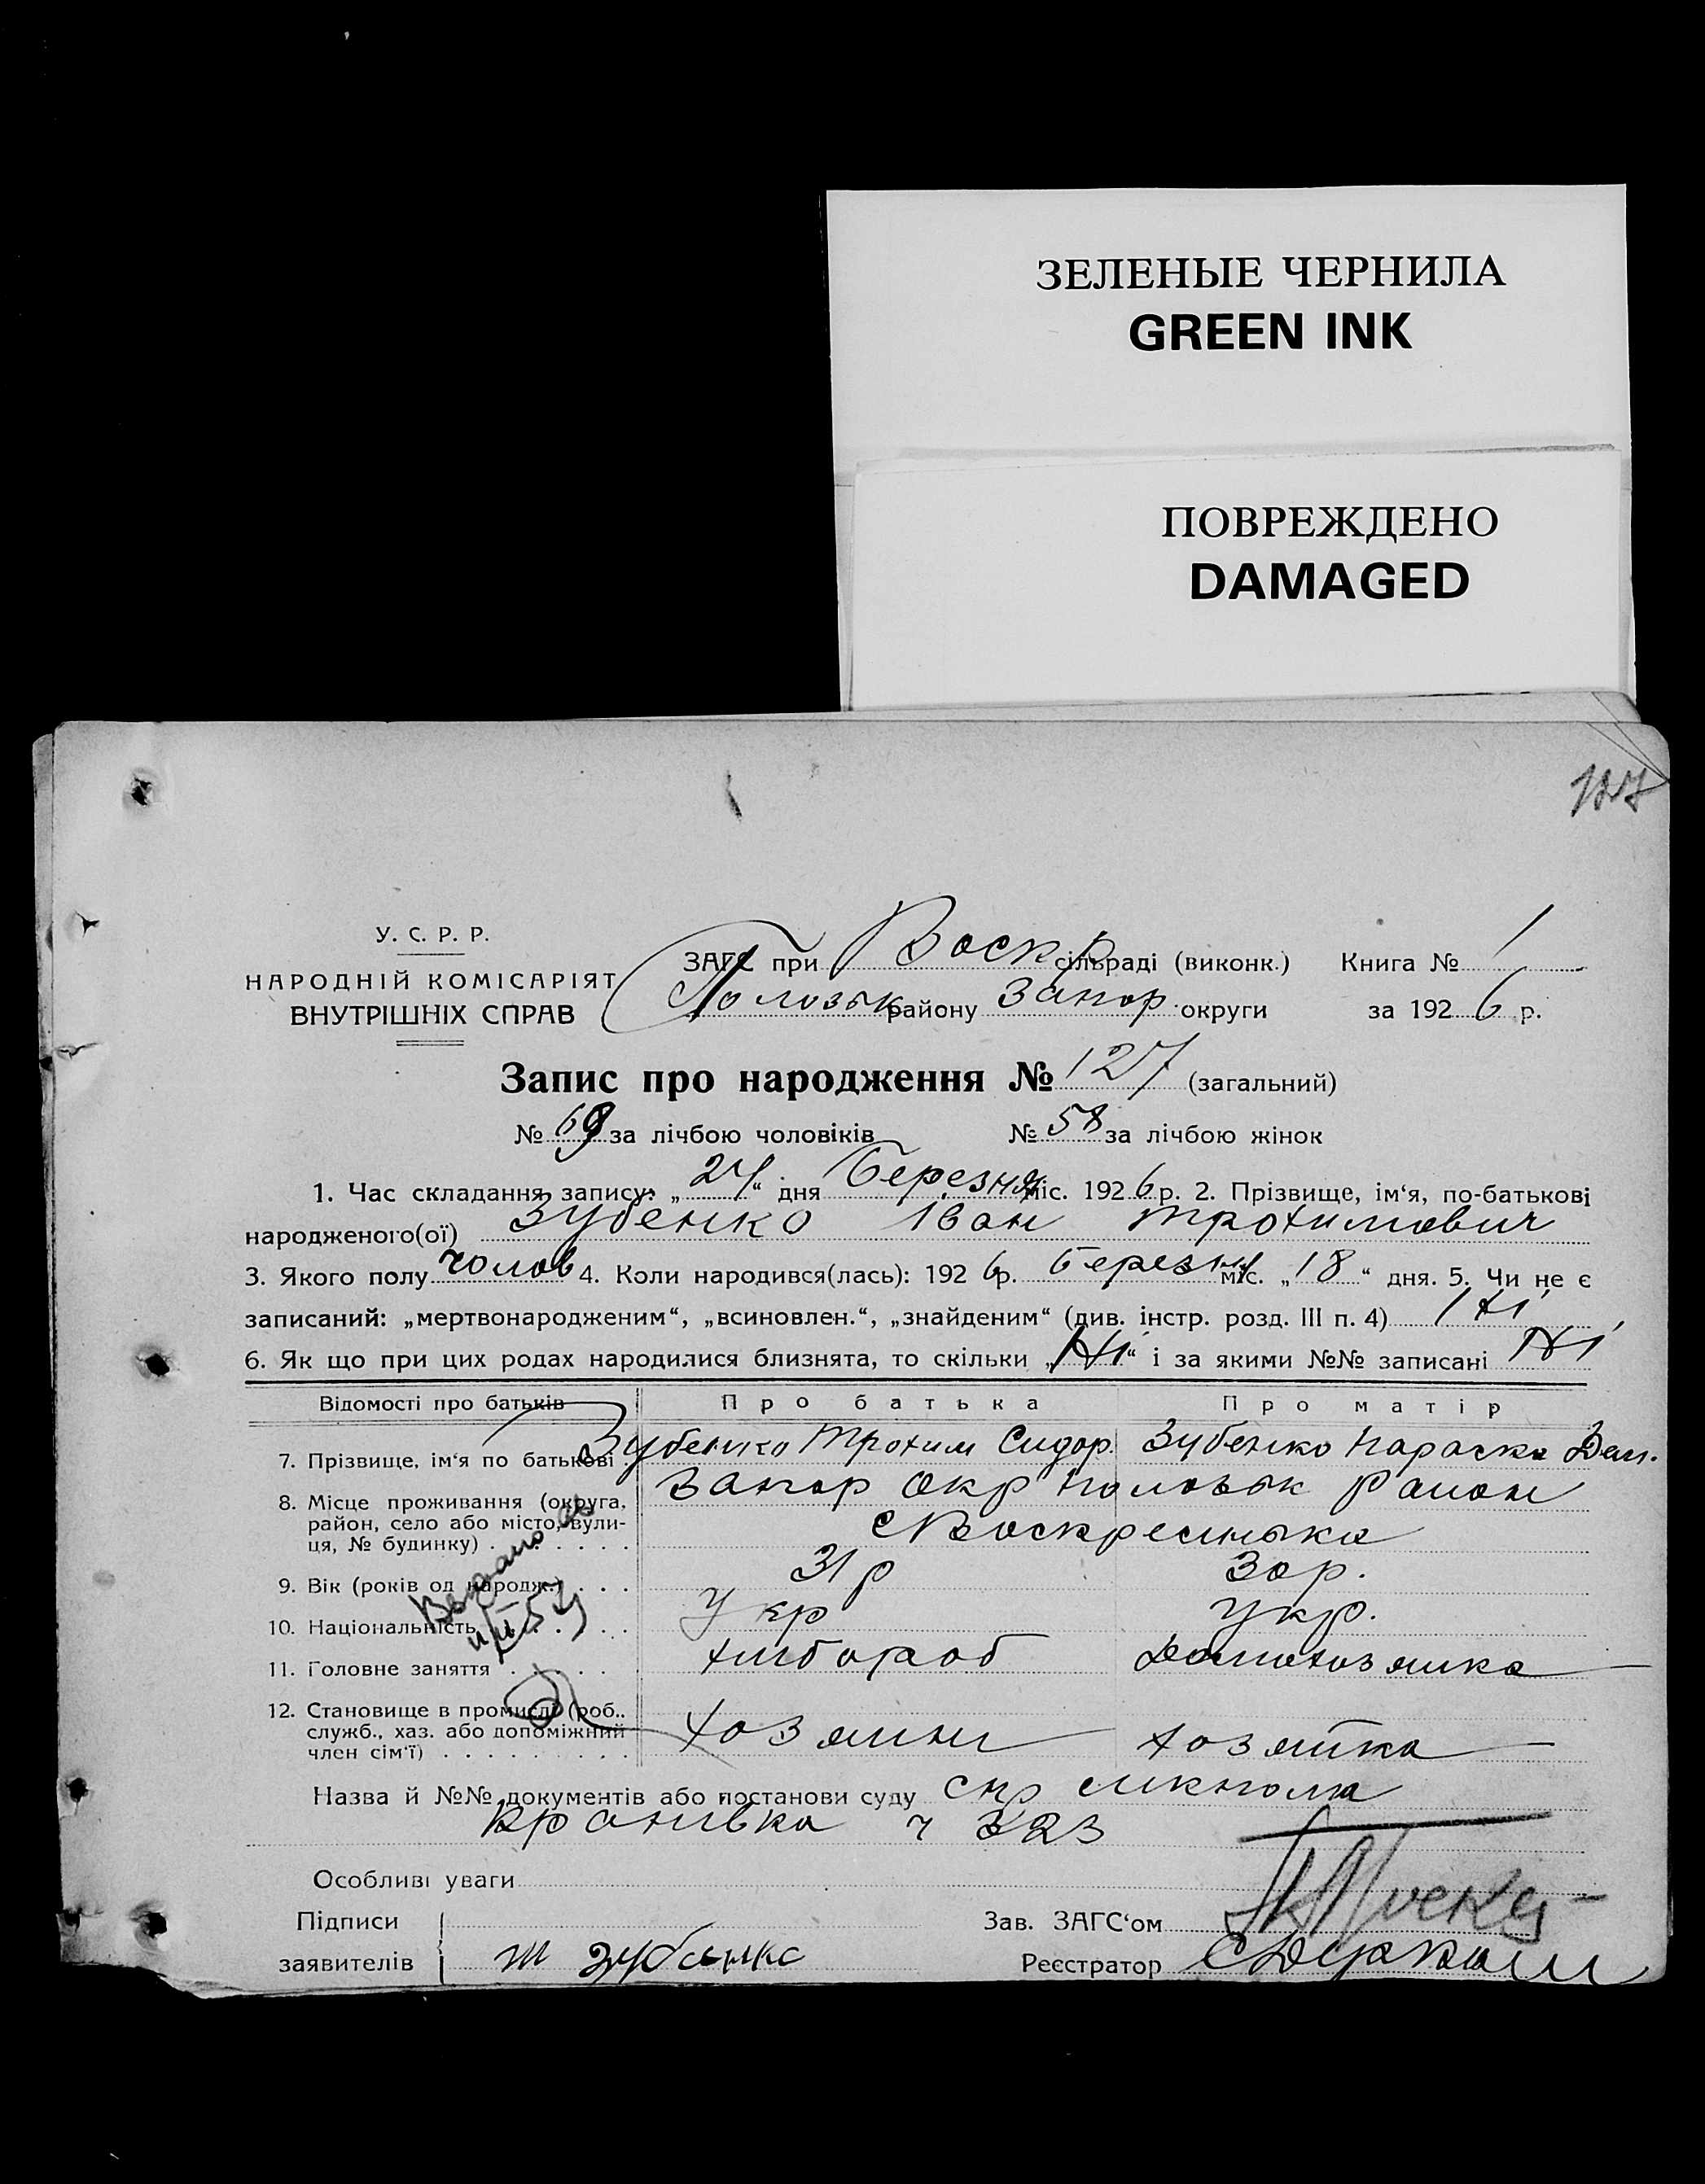 ЗЕЛЕНЫЕ ЧЕРНИЛА
GREEN INK
ПОВРЕЖДЕНО
DAMAGED
У. С. Р. Р.
НАРОДНІЙ КОМІСАРІЯТ
ВНУТРІШНІХ СПРАВ
ЗАГС при Воскр сільраді (виконк.) Книга № 1
Пологівськ району Запор. округи за 1926 р.
Запис про народження № 127 (загальний)
№ 69 за лічбою чоловіків № 58 за лічбою жінок
1. Час складання запису: „24“ дня Березня міс. 1926 р. 2. Прізвище, ім‘я, по-батькові
народженого(ої) Зубенко Іван Трохимович
3. Якого полу чолов 4. Коли народився(лась): 1926 р. березня міс. „18“ дня. 5. Чи не є
записаний: „мертвонародженим“, „всиновлен.“, „знайденим“ (див. інстр. розд. III п. 4) Ні
6. Як що при цих родах народилися близнята, то скільки „Ні“ і за якими №№ записані Ні
Відомості про батьків Про батька Про матір
7. Прізвище, ім‘я по батькові Зубенко Трохим Сидор. Зубенко Параска Дем.
8. Місце проживання (округа, Запор окр район
район, село або місто, вули- с Воскресінька
ця, № будинку)
9. Вік (років од народж.) 31 р 30 р.
10. Національність Укр Укр.
11. Головне заняття хлібороб домохозяйка
12. Становище в промислі (роб.,
служб., хаз. або допоміжний хозяин хозяйка
член сім‘ї)
Назва й №№ документів або постанови суду
ч 323
Особливі уваги
Підписи Зав. ЗАГС‘ом
заявителів Т Зубенко Реєстратор